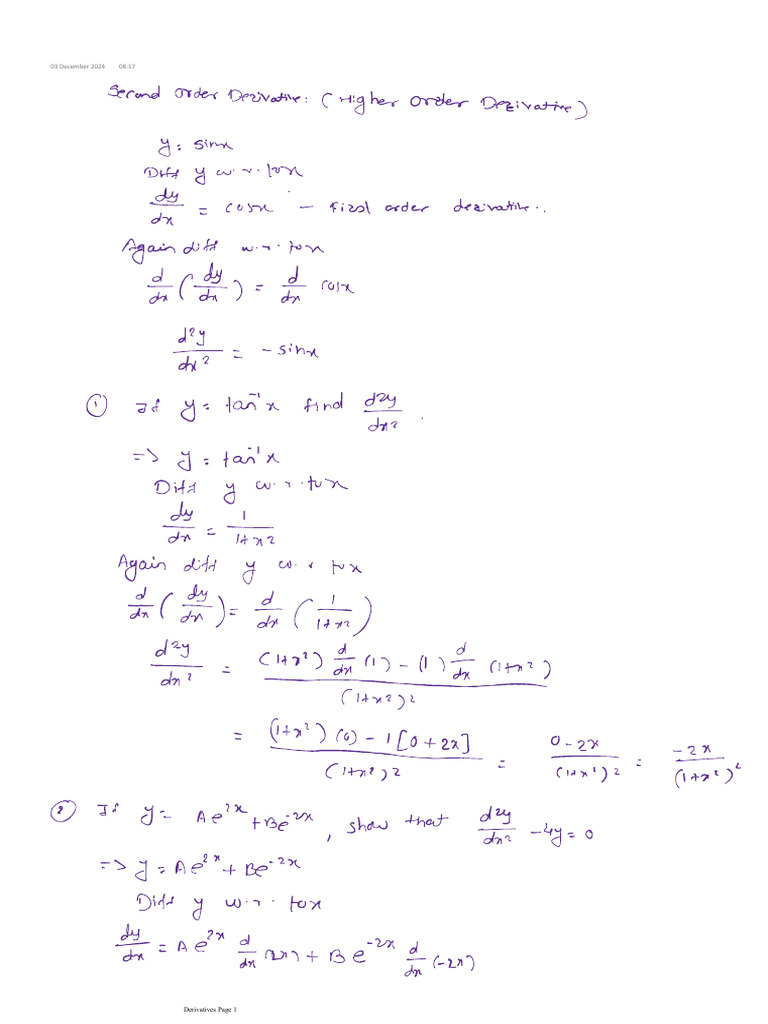 03 December 2024 08:17
Second Order Derivative: (Higher Order Derivative)
y = sinx
Diff y w.r.tox
dy/dx = cosx – first order derivative..
Again diff w.r.tox
d/dx (dy/dx) = d/dx cosx
d²y/dx² = -sinx
① If y = tan⁻¹x find d²y/dx².
=> y = tan⁻¹x
Diff y w.r.tox
dy/dx = 1/(1+x²)
Again diff y w.r tox
d/dx (dy/dx) = d/dx (1/(1+x²))
d²y/dx² = ((1+x²) d/dx (1) - (1) d/dx (1+x²))/(1+x²)²
= ((1+x²)(0) - 1[0+2x])/(1+x²)² = (0-2x)/(1+x²)² = -2x/(1+x²)²
② If y = Ae²ˣ+Be⁻²ˣ, show that d²y/dx² -4y=0
=> y = Ae²ˣ+Be⁻²ˣ
Diff y w.r. tox
dy/dx = Ae²ˣ d/dx (2x) + Be⁻²ˣ d/dx (-2x)
Derivatives Page 1